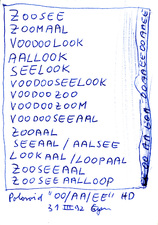 ZOOSEE
ZOOMAAL
VOODOOLOOK
AALLOOK
SEELOOK
VOODOOSEELOOK
VOODOOZOO
VOODOOZOOM
VOODOOSEEAAL
ZOOAAL
SEEAAL / AALSEE
LOOKAAL / LOOPAAL
ZOOSEEAAL
ZOOSEEAALLOOP
"OO/AA/EE" HD
31 III 12